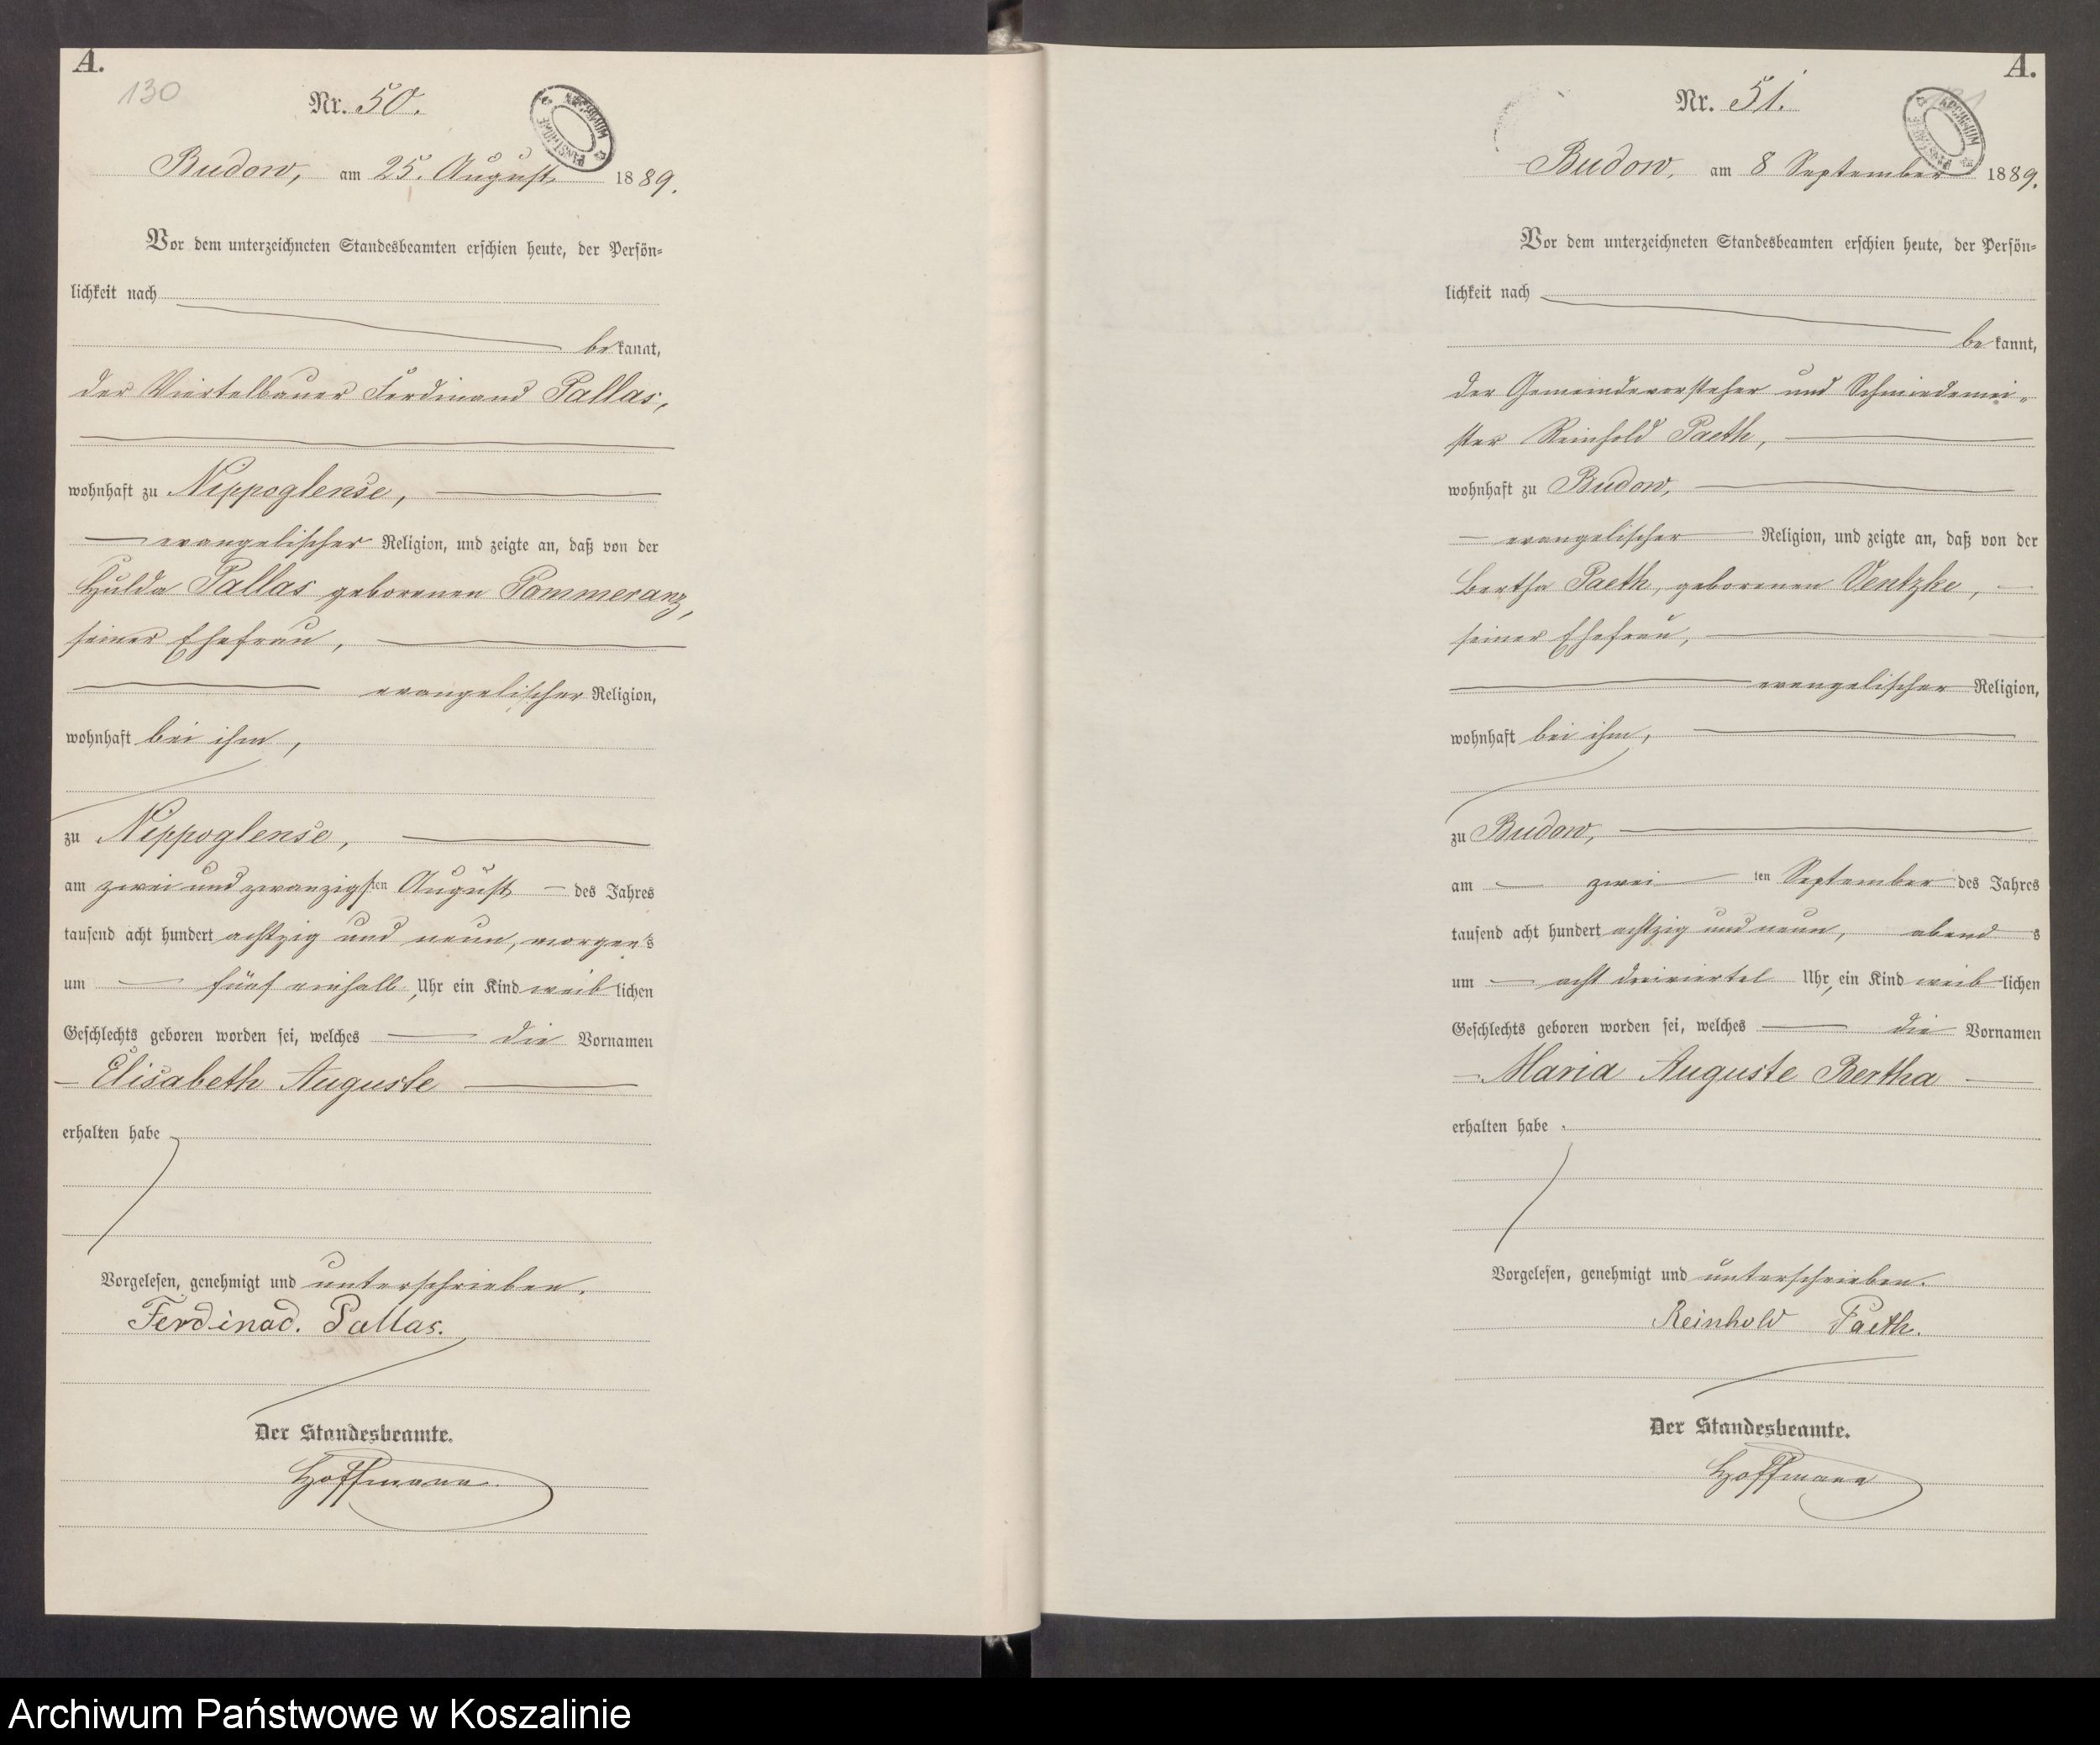 A.
130
Nr. 50.
ARCHIWUM PAŃSTWOWE
Budow, am 25. August 1889.
Vor dem unterzeichneten Standesbeamten erschien heute, der Persön=
lichkeit nach
bekannt,
der Viertelbauer Ferdinand Pallas,
wohnhaft zu Nippoglense,
evangelischer Religion, und zeigte an, daß von der
Hulda Pallas geborenen Pommeranz,
seiner Ehefrau,
evangelischer Religion,
wohnhaft bei ihm,
zu Nippoglense,
am zwei und zwanzigsten August des Jahres
tausend acht hundert achtzig und neun, morgens
um fünf einhalb Uhr, ein Kind weiblichen
Geschlechts geboren worden sei, welches die Vornamen
Elisabeth Auguste
erhalten habe
Vorgelesen, genehmigt und unterschrieben.
Ferdinad. Pallas.
Der Standesbeamte.
Hoffmann.
A.
131
Nr. 51.
ARCHIWUM PAŃSTWOWE
Budow, am 8 September 1889.
Vor dem unterzeichneten Standesbeamten erschien heute, der Persön=
lichkeit nach
bekannt,
der Gemeindevorsteher und Schmiedemei„
ster Reinhold Paeth,
wohnhaft zu Budow,
evangelischer Religion, und zeigte an, daß von der
Bertha Paeth, geborenen Ventzke,
seiner Ehefrau,
evangelischer Religion,
wohnhaft bei ihm,
zu Budow,
am zweiten September des Jahres
tausend acht hundert achtzig und neun, abends
um acht dreiviertel Uhr, ein Kind weiblichen
Geschlechts geboren worden sei, welches die Vornamen
Maria Auguste Bertha
erhalten habe.
Vorgelesen, genehmigt und unterschrieben.
Reinhold Paeth.
Der Standesbeamte.
Hoffmann
Archiwum Państwowe w Koszalinie